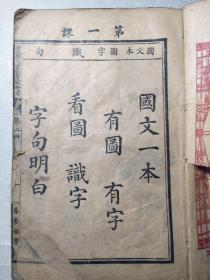 第一課
國文本圖字識句
國文一本
有圖 有字
看圖 識字
字句明白